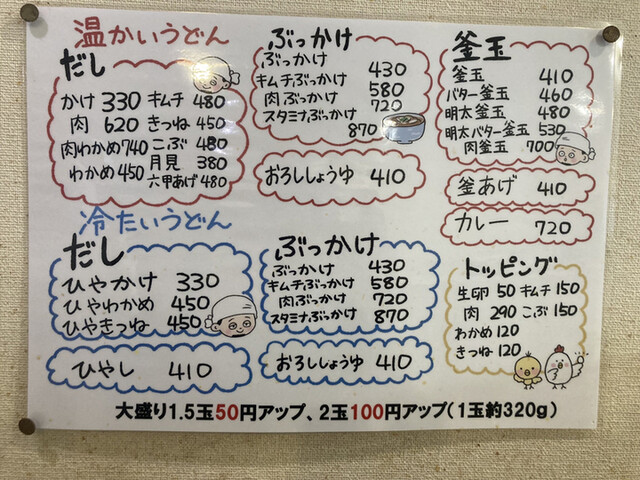 温かいうどん
だし
かけ 330 キムチ 480
肉 620 きつね 450
肉わかめ 740 こぶ 480
わかめ 450 月見 380
六甲あげ 480
ぶっかけ
ぶっかけ 430
キムチぶっかけ 580
肉ぶっかけ 720
スタミナぶっかけ 870
おろししょうゆ 410
釜玉
釜玉 410
バター釜玉 460
明太釜玉 480
明太バター釜玉 530
肉釜玉 700
釜あげ 410
カレー 720
冷たいうどん
だし
ひやかけ 330
ひやわかめ 450
ひやきつね 450
ひやし 410
ぶっかけ
ぶっかけ 430
キムチぶっかけ 580
肉ぶっかけ 720
スタミナぶっかけ 870
おろししょうゆ 410
トッピング
生卵 50 キムチ 150
肉 290 こぶ 150
わかめ 120
きつね 120
大盛り1.5玉50円アップ、2玉100円アップ(1玉約320g)